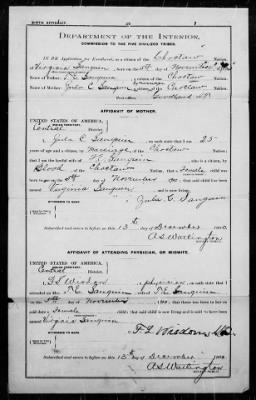 BIRTH AFFIDAVIT.
DEPARTMENT OF THE INTERIOR,
COMMISSION TO THE FIVE CIVILIZED TRIBES.
IN RE Application for Enrollment, as a citizen of the Choctaw Nation,
of Virginia Sanguin born on the 5th day of November
Name of Father: T. E. Sanguin a citizen of the Choctaw Nation.
Name of Mother: Zula C. Sanguin a citizen of the Choctaw Nation.
AFFIDAVIT OF MOTHER.
UNITED STATES OF AMERICA,
INDIAN TERRITORY,
Central District.
I, Zula C Sanguin on oath state that I am 25
years of age and a citizen, by marriage of the Choctaw Nation;
that I am the lawful wife of T. E. Sanguin who is a citizen, by
Blood of the Choctaw Nation; that a female child was
born to me on 5th day of November that said child has been
named Virginia Sanguin and is now living.
Zula C. Sanguin
Subscribed and sworn to before me this 13th day of December
AFFIDAVIT OF ATTENDING PHYSICIAN, OR MIDWIFE.
UNITED STATES OF AMERICA,
INDIAN TERRITORY,
Central District.
physician on oath state that I
attended on Mrs. T. E. Sanguin wife of T. E. Sanguin
on the 5th day of November that there was born to her on
said date a female child; that said child is now living and is said to have been
named Virginia Sanguin
Subscribed and sworn to before me this 13th day of December